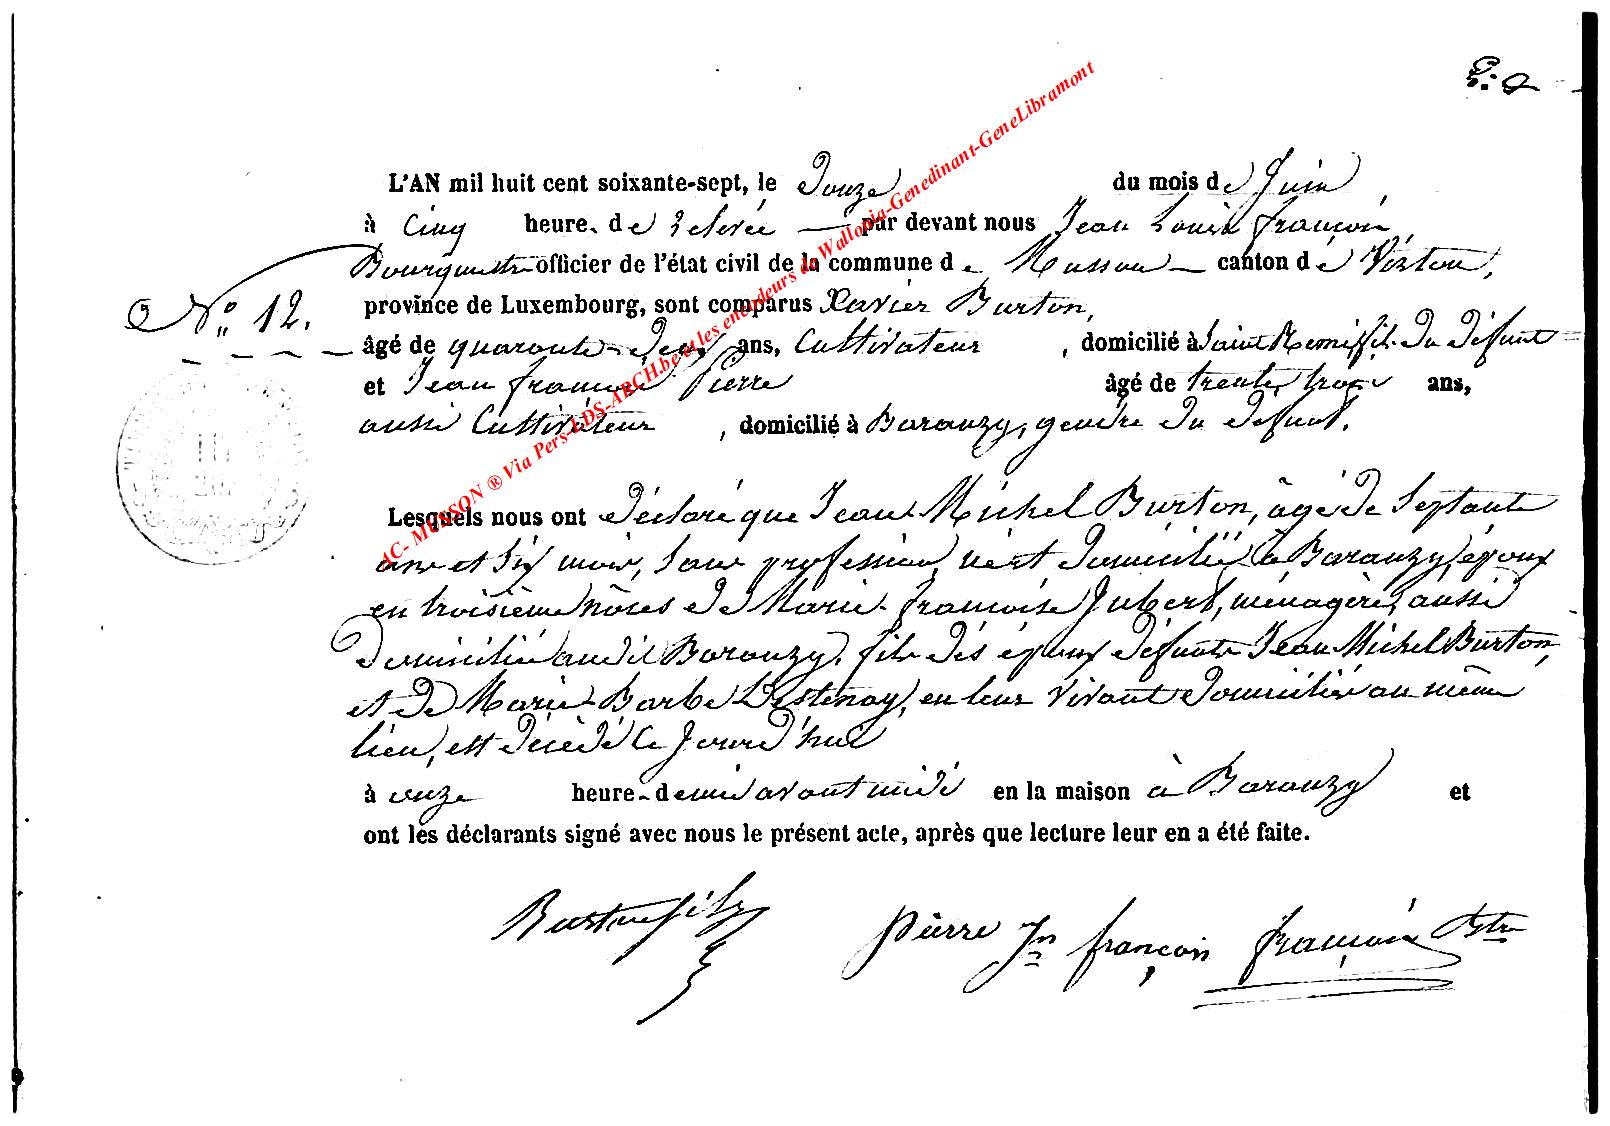 L'AN mil huit cent soixante-sept, le Douze du mois de Juin
à Cinq heure. de relevée — par devant nous Jean Louis françois,
Bourgmestre officier de l'état civil de la commune de Musson — canton de Virton,
N° 12.
province de Luxembourg, sont comparus Xavier Burton,
âgé de quarante-deux ans, Cultivateur, domicilié à Saint Remi, fils du défunt
et Jean françois Pierre âgé de trente trois ans,
aussi Cultivateur, domicilié à Baranzy, gendre du défunt.
Lesquels nous ont déclaré que Jean Michel Burton, âgé de Septante
ans et six mois, sans profession, né et domicilié à Baranzy, époux
en troisième nôces de Marie-françoise Jubert, ménagère, aussi
domiciliée audit Baranzy, fils des époux défunts Jean Michel Burton,
et de Marie-Barbe Destenay, en leur vivant domiciliés au même
lieu, est décédé ce jourd'hui
à onze heure-demie avant midi en la maison à Baranzy et
ont les déclarants signé avec nous le présent acte, après que lecture leur en a été faite.
Burton fils Pierre Jn françois françois Btre
AC- MUSSON ® Via Pers-LDS-ARCH.be et les encodeurs de Wallonia-Genedinant-GeneLibramont